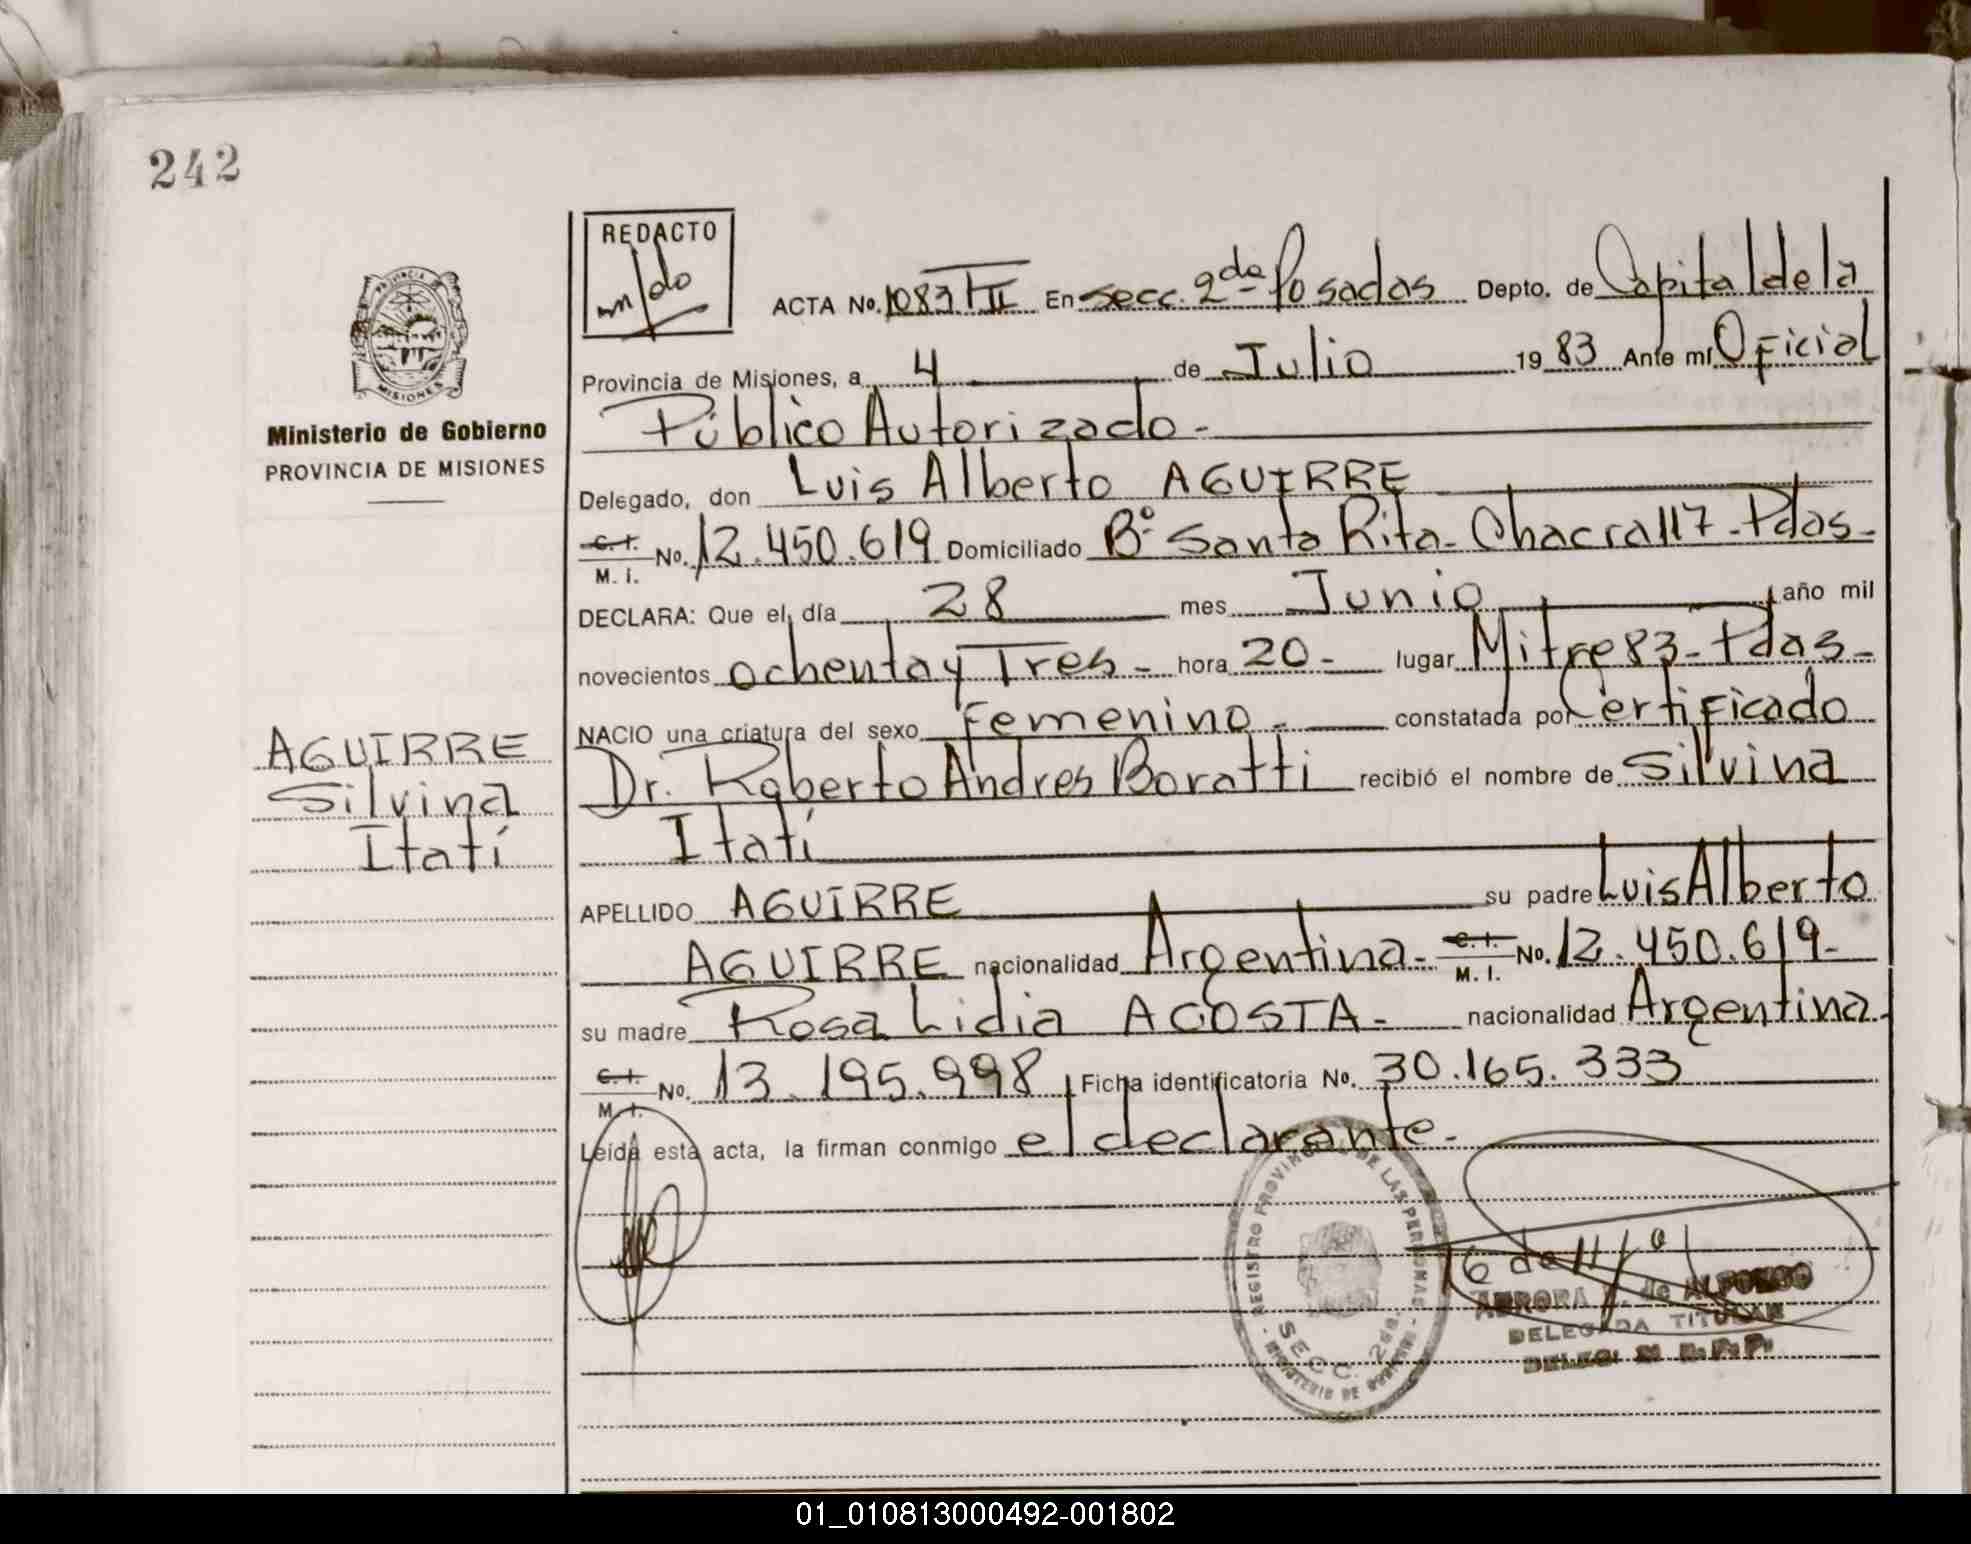 242
REDACTO
PROVINCIA DE
MISIONES
Ministerio de Gobierno
PROVINCIA DE MISIONES
ACTA No. 1083 TII En Secc. 2da Posadas Depto. de Capital de la
Provincia de Misiones, a 4 de Julio 19 83 Ante mí Oficial
Público Autorizado -
Delegado, don Luis Alberto AGUIRRE
C. I.
M. I. No. 12.450.619 Domiciliado Bº Santa Rita - Chacra 117 - Pdas -
DECLARA: Que el día 28 mes Junio año mil
novecientos ochenta y Tres - hora 20 - lugar Mitre 83 - Pdas -
NACIO una criatura del sexo Femenino - constatada por Certificado
Dr. Roberto Andres Boratti recibió el nombre de Silvina
Itatí
AGUIRRE
Silvina
Itatí
APELLIDO AGUIRRE su padre Luis Alberto
AGUIRRE nacionalidad Argentina - C. I.
M. I. No. 12.450.619 -
su madre Rosa Lidia ACOSTA - nacionalidad Argentina
C. I.
M. I. No. 13.195.998 Ficha identificatoria No. 30.165.333
Leída esta acta, la firman conmigo el declarante -
REGISTRO PROVINCIAL DE LAS PERSONAS
MINISTERIO DE GOBIERNO
SECC. 2da.
de ALFONSO
DELEGADA TITULAR
01_010813000492-001802